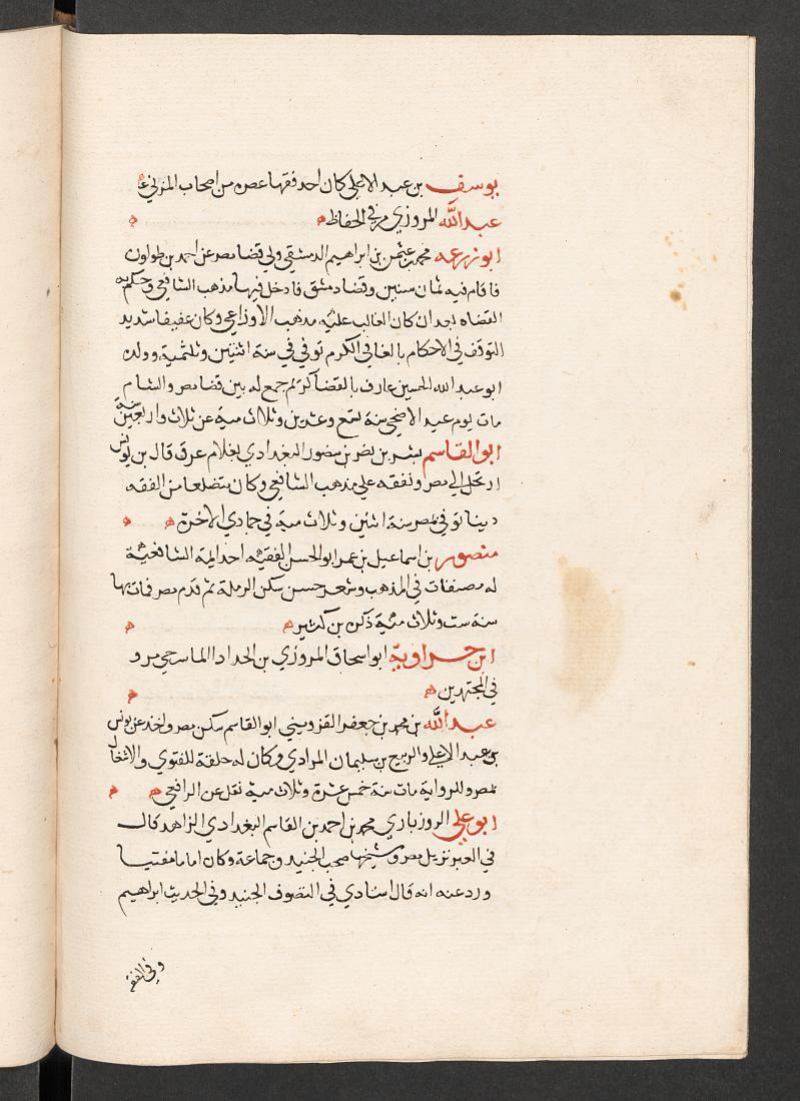 يوسف بن عبد الاعلى كان احد فقها عصره من اصحاب المزني
عبد الله المروزي مر في الحفاظ
ابو زرعه محمد بن عثمن بن ابراهيم الدمشقي ولي قضا مصر عن احمد بن طولون
فاقام فيه ثمان سنين وقضا دمشق فادخل فيها مذهب الشافعي وحكم به
القضاه بعد ان كان الغالب عليه مذهب الاوزاعي وكان عفيفا شديد
التوقف في الاحكام بالغا في الكرم توفي في سنة اثنتين وثلثمية وولده
ابو عبد الله الحسين عارف بالقضا كريم جمع له بين قضا مصر والشام
مات يوم عيد الاضحى سنة تسع وعشرين وثلاث مية عن ثلاث واربعين سنة
ابو القاسم بشر بن نصر بن منصور البغدادي بغلام عرق قال بن يونس
ارتحل الي مصر وتفقه علي مذهب الشافعي وكان متضلعا من الفقه
دينا توفي بمصر سنة اثنين وثلاث مية في جمادي الاخرة
منصور بن اسماعيل بن عمر ابو الحسن الفقيه احد ايمة الشافعية
له مصنفات في المذهب وشعر حسن سكن الرملة ثم قدم مصر فمات بها
سنة ست وثلاث مئية ذكره بن كثير
ابو اسحاق المروزي بن الحداد الماسرجي مرو
في المجتهدين
عبد الله بن محمد بن جعفر القزويني ابو القاسم سكن مصر واخذ عن يونس
بن عبد الاعلي والربيع بن سليمان المرادي وكان له حلقة للفتوي والاشغال
بمصر وللرواية مات سنة خمس عشرة وثلاث مية نقل عن الرافعي
ابو علي الروزباري محمد بن احمد بن القاسم البغدادي الزاهد قال
في العبر نزيل مصر وشيخها صحب الجنيد وجماعة وكان اماما مفتيا
ورد عنه انه قال استادي في التصوف الجنيد وفي الحديث ابراهيم
وفي الفقه